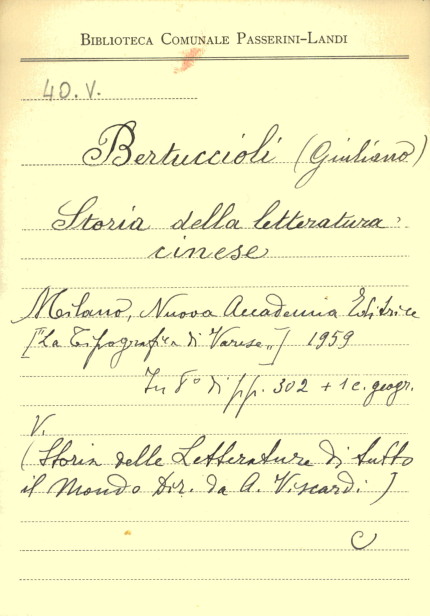 BIBLIOTECA COMUNALE PASSERINI-LANDI
40.V.
Bertuccioli (Giuliano)
Storia della letteratura
cinese
Milano, Nuova Accademia Editrice
["La Tipografica di Varese„] 1959
In 8° di pp. 302 + 1 c. geogr.
V.
(Storia delle Letterature di tutto
il Mondo Dir. da A. Viscardi)
C